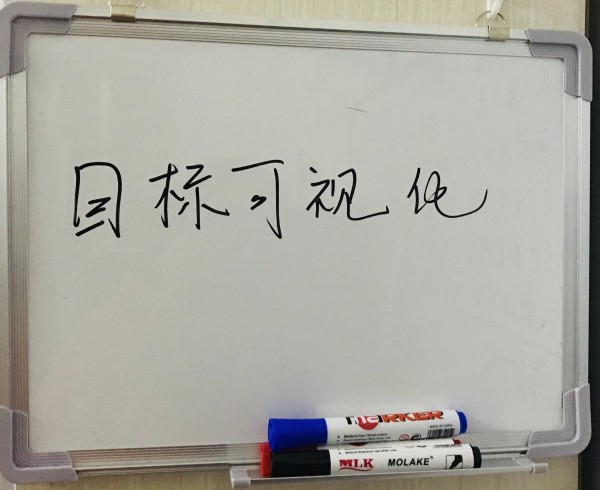 目标可视化
MARKER
MLK MOLAKE